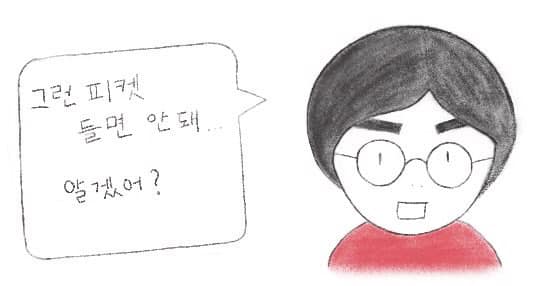 그런 피켓
들면 안돼...
알겠어?